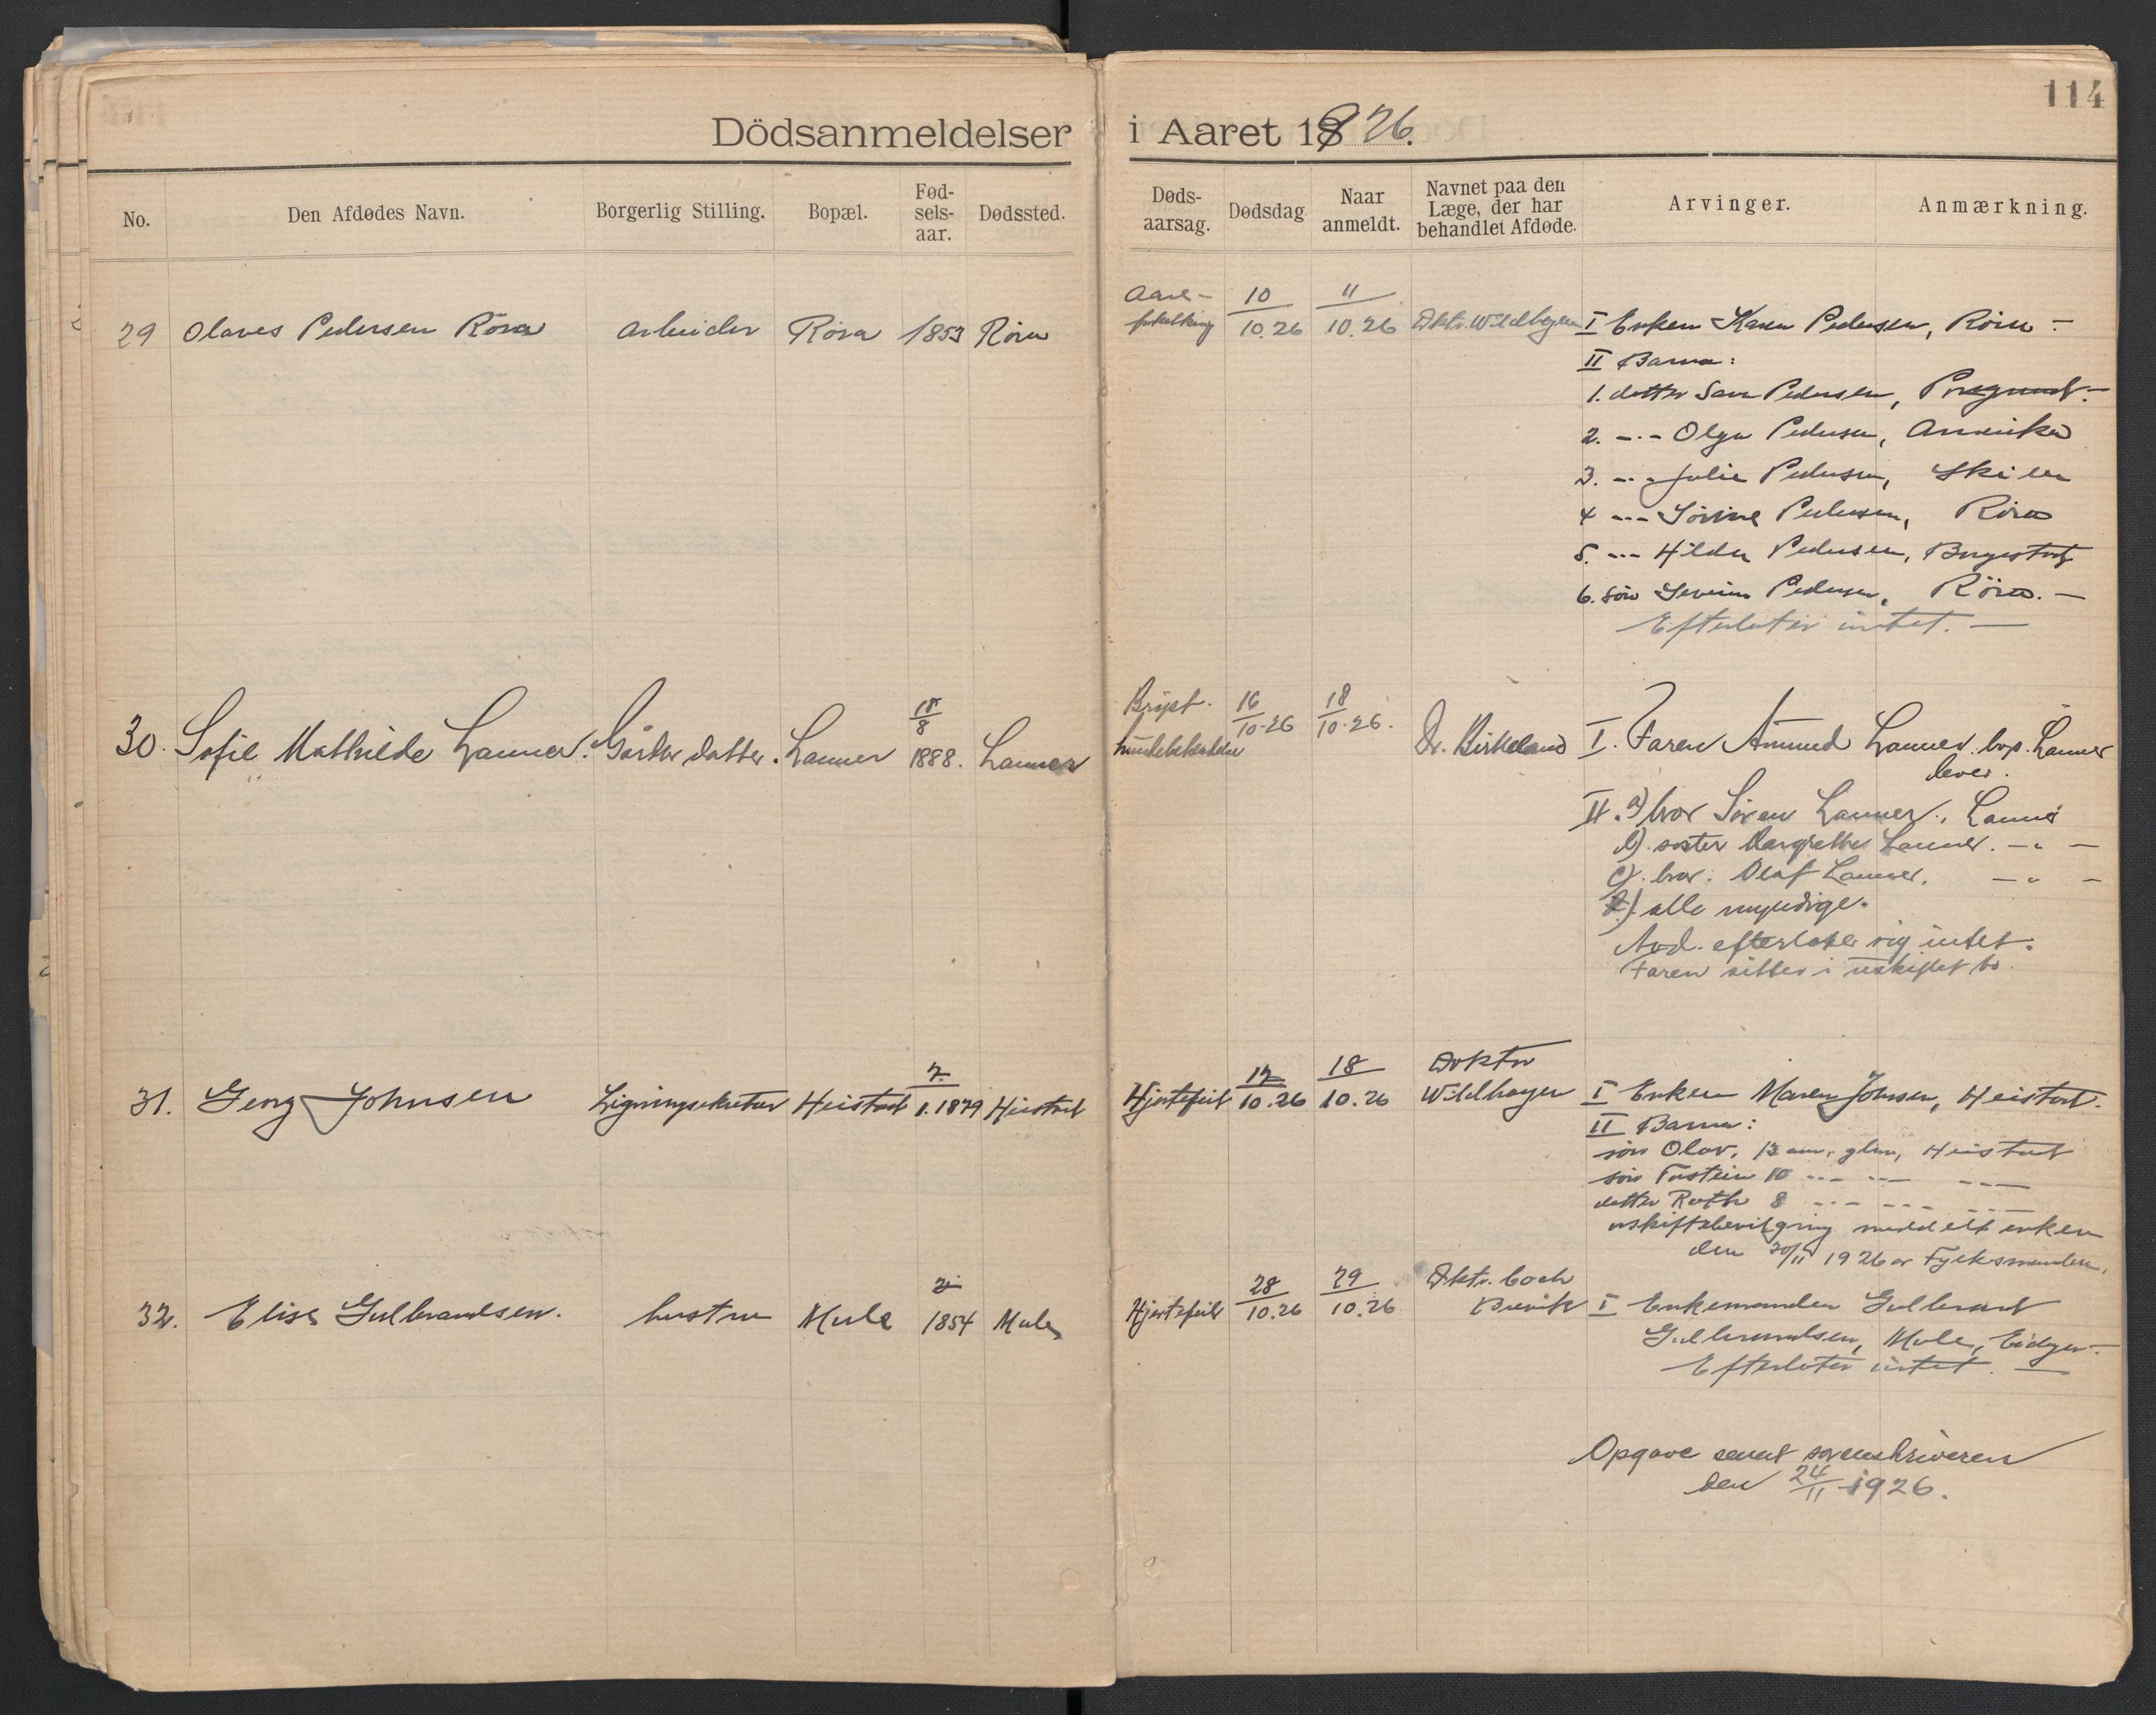 114
Dödsanmeldelser i Aaret 1926.
No. Den Afdødes Navn. Borgerlig Stilling. Bopæl. Fød-sels-aar. Dødssted. Døds-aarsag. Dødsdag Naar anmeldt. Navnet paa den Læge, der har behandlet Afdøde. Arvinger. Anmærkning.
29 Olaves Pedersen Röra arbeider Röra 1853 Röra Aare-forkalkning 10/10.26 11/10.26 Dktr. Wildhagen I Enken Karen Pedersen, Röra -
II Barna:
1. datter Sara Pedersen, Porsgrund. -
2. -"- Olga Pedersen, Amerika
3. -"- Julie Pedersen, Skien
4 -"- Sörine Pedersen, Röra
5. -"- Hilda Pedersen, Borgestad
6. sön Severin Pedersen, Röra. -
Efterlater intet. -
30. Sofie Mathilde Lanner. Gårdb. datter. Lanner 18/8 1888. Lanner Bryst-hindebetendelse 16/10-26 18/10-26. Dr. Birkeland I. Faren Amund Lanner. bop. Lanner
lever.
II. a) bror Sören Lanner., Lanner
b). søster Margrethe Lanner. -"-
c). bror. Olaf Lanner. -"-
alle myndige.
Avd. efterlater sig intet.
Faren sitter i uskiftet bo.
31. Georg Johnsen Ligningssekretær Heistad 7/1.1879 Heistad Hjertefeil 17/10.26 18/10.26 Doktor Wildhagen I Enken Maren Johnsen, Heistad.
II Barna:
sön Olav, 13 aar gl., Heistad
sön Torstein 10 -"- -"- -"-
datter Ruth 8 -"- -"- -"-
uskiftebevilgning meddelt enken
den 30/11 1926 av Fylkesmanden.
32. Elise Gulbrandsen. hustru Mule 1854 Mule Hjertefeil 28/10.26 29/10.26 Dktr. Coch Brevik I Enkemanden Gulbrand
Gulbrandsen, Mule, Eidanger.
Efterlater intet. -
Opgave sendt sorenskriveren
den 24/11 1926.